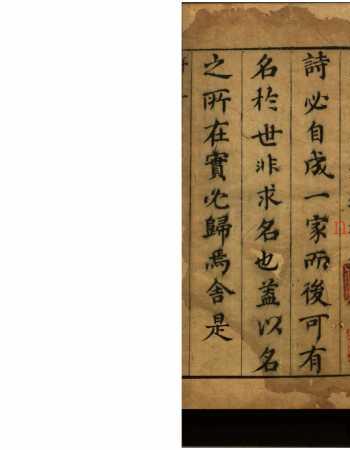 詩必自成一家而後可有
名於世非求名也蓋以名
之所在實必歸焉舍是